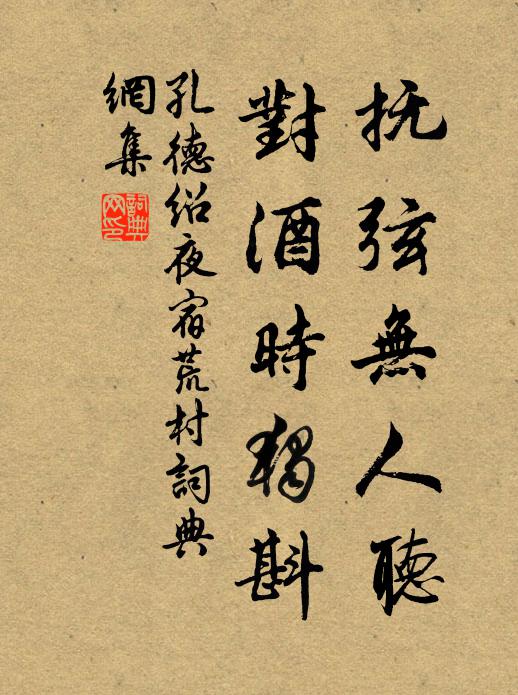 抚弦無人聽
對酒時獨斟
孔德绍夜宿荒村詞典
網集
詞典网印